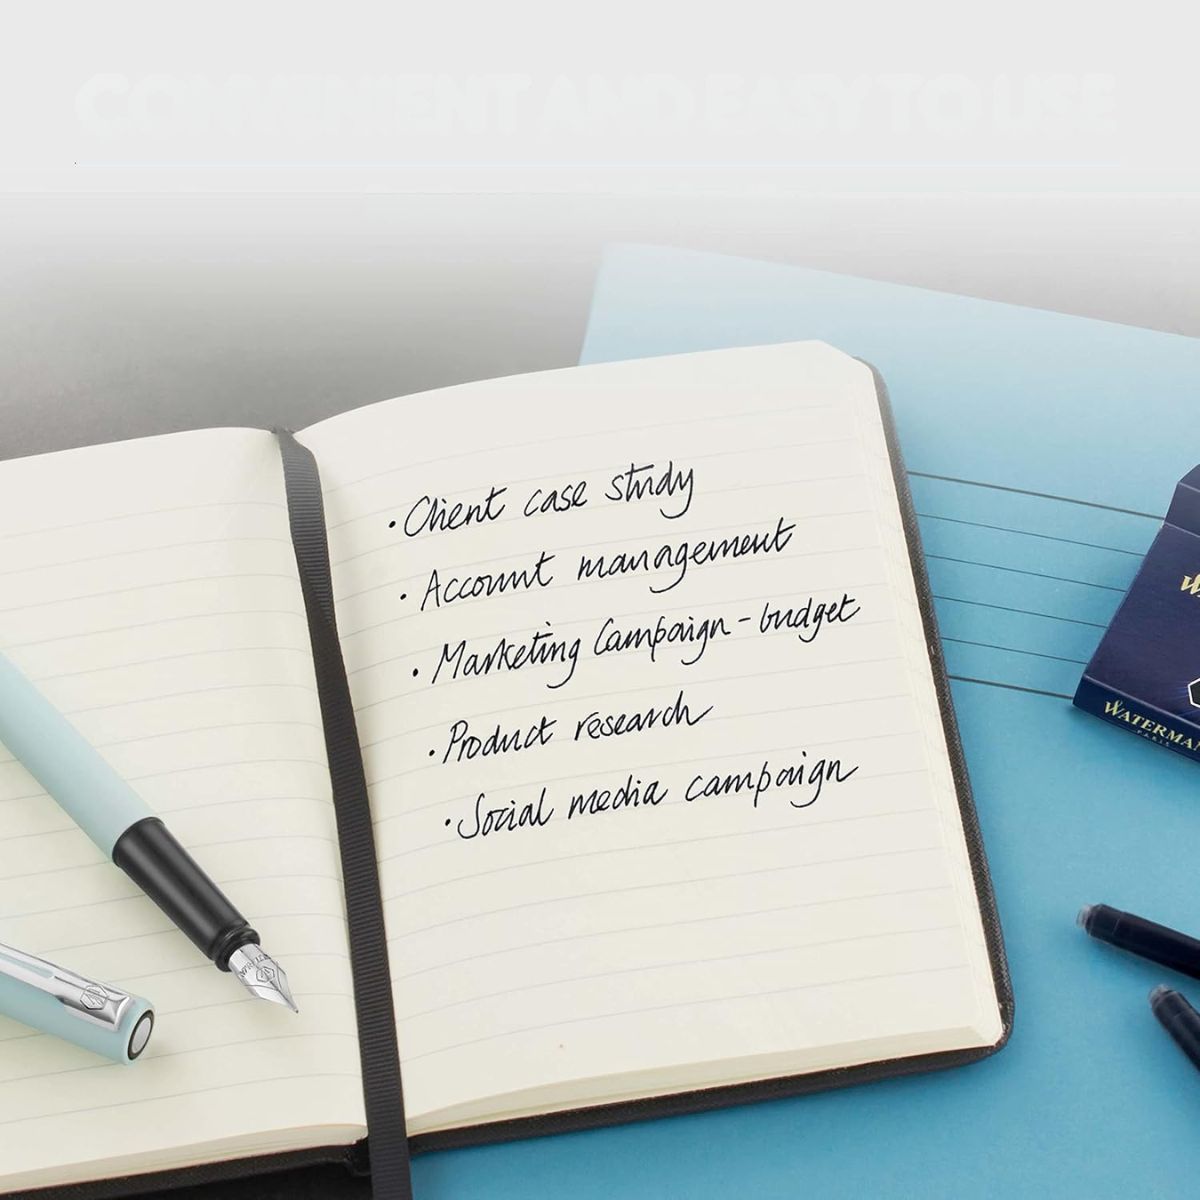 CONVENIENT AND EASY TO USE
• Client case study
• Account management
• Marketing Campaign - budget
• Product research
• Social media campaign
WATERMAN
PARIS